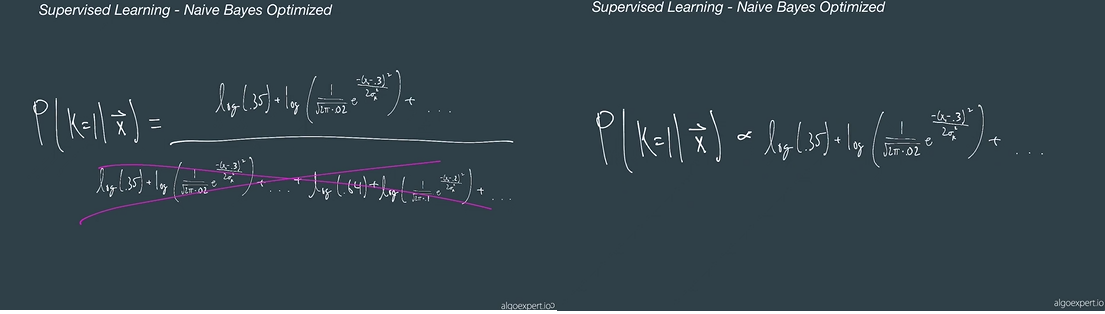 Supervised Learning - Naive Bayes Optimized
P(K=1|x⃗) =
log(.35) + log(1/√(2π·.02) e^(-(x-.3)²/2σₓ²)) + ...
log(.35) + log(1/√(2π·.02) e^(-(x-.3)²/2σₓ²)) + ... + log(.64) + log(1/√(2π·.1) e^(-(x-.3)²/2σₓ²)) + ...
algoexpert.io
Supervised Learning - Naive Bayes Optimized
P(K=1|x⃗) ∝ log(.35) + log(1/√(2π·.02) e^(-(x-.3)²/2σₓ²)) + ...
algoexpert.io